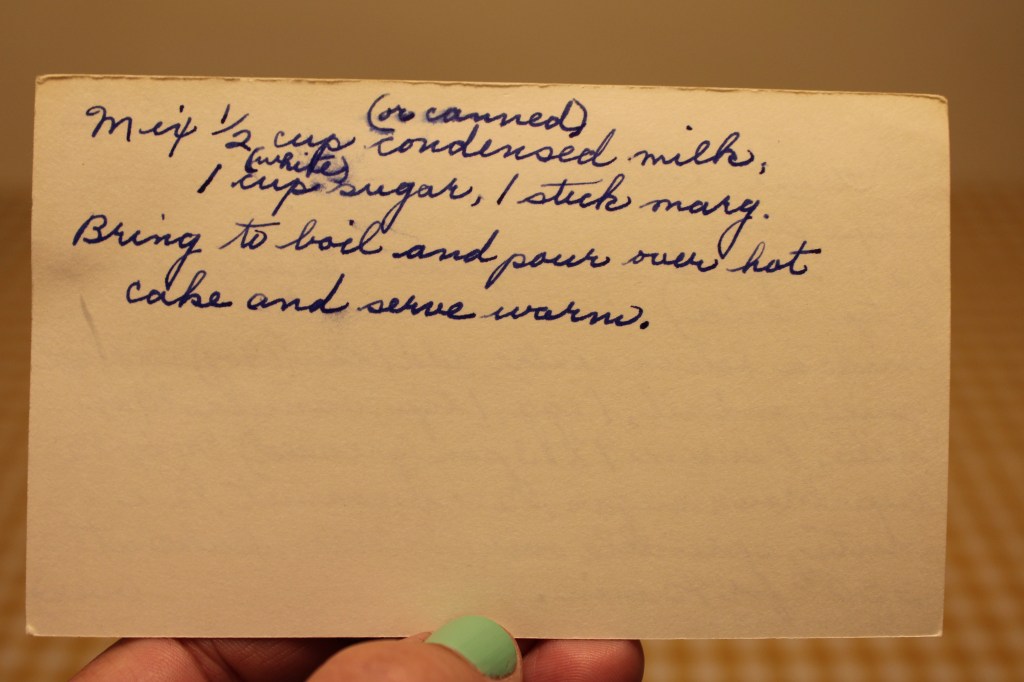 (or canned)
Mix 1/2 cup condensed milk,
(white)
1 cup sugar, 1 stick marg.
Bring to boil and pour over hot
cake and serve warm.